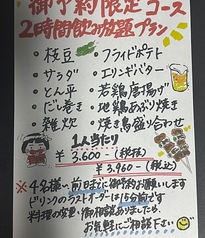 御予約限定コース
2時間飲み放題プラン
・枝豆 ・フライドポテト
・サラダ ・エリンギバター
・とん平 ・若鶏唐揚げ
・だし巻き ・地鶏あぶり焼き
・雑炊 ・焼き鳥盛り合わせ
1人当たり
¥3,600-(税抜)
¥3,960-(税込)
※4名様〜、前日までに御予約お願いします
ドリンクのラストオーダーは15分前です
料理の変更・御相談ありましたら、
お気軽にご相談下さい